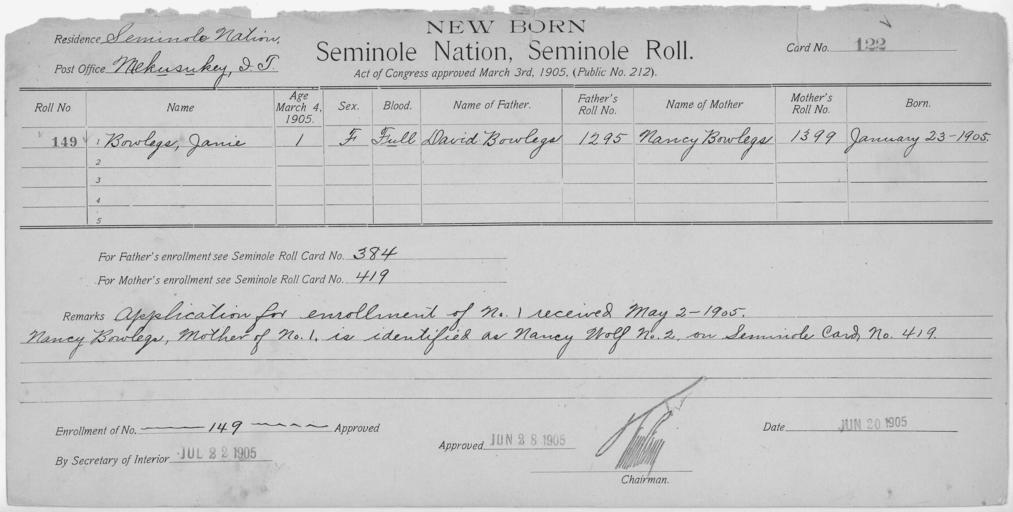 NEW BORN
Residence Seminole Nation.
Seminole Nation, Seminole Roll.
Card No. 122
Post Office Mekusukey, I.T.
Act of Congress approved March 3rd, 1905, (Public No. 212).
Roll No Name Age March 4, 1905. Sex. Blood. Name of Father. Father's Roll No. Name of Mother Mother's Roll No. Born.
149 1 Bowlegs, Janie 1 F Full David Bowlegs 1295 Nancy Bowlegs 1399 January 23-1905.
2
3
4
5
For Father's enrollment see Seminole Roll Card No. 384
For Mother's enrollment see Seminole Roll Card No. 419
Remarks Application for enrollment of No. 1 received May 2-1905.
Nancy Bowlegs, Mother of No. 1, is identified as Nancy Wolf No. 2, on Seminole Card, No. 419.
Enrollment of No. 149 Approved
Date JUN 20 1905
Approved JUN 28 1905
By Secretary of Interior JUL 22 1905
Chairman.